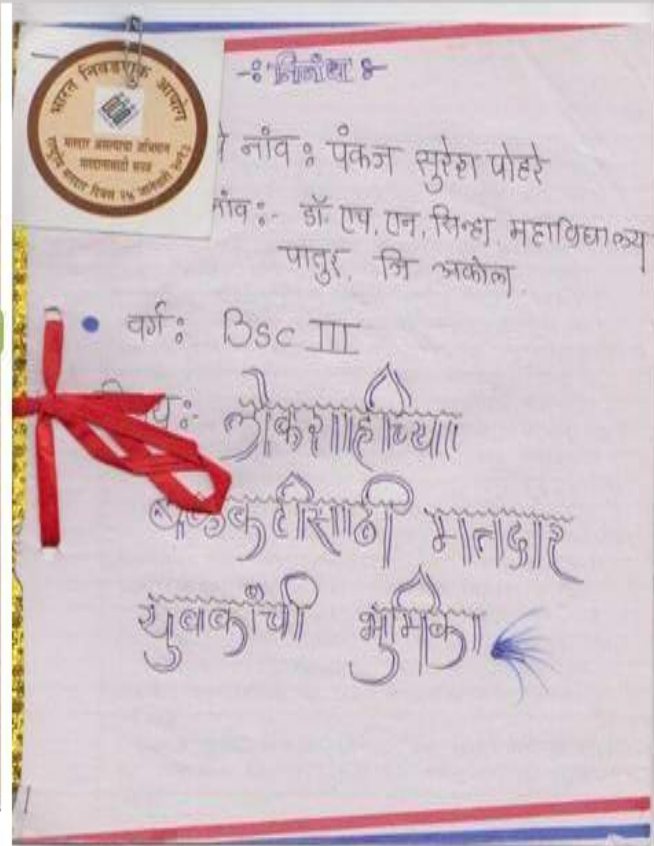 भारत निवडणुक आयोग
मतदार असल्याचा अभिमान
मतदानासाठी सज्ज
राष्ट्रीय मतदार दिवस २५ जानेवारी २०१३
-: निबंध :-
नांव : पंकज सुरेश पोहरे
नांव :- डॉ. एच. एन. सिन्हा. महाविद्यालय
पातुर, जि अकोला.
वर्ग : Bsc III
लोकशाहीच्या
बळकटीसाठी मतदार
युवकांची भुमिका